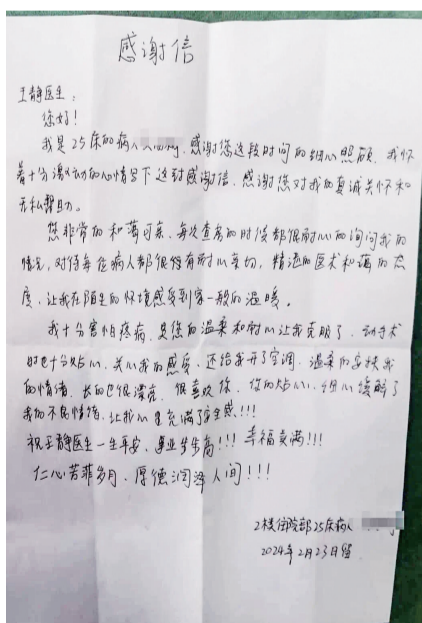 感谢信
王静医生：
您好！
我是25床的病人 感谢您这段时间的细心照顾，我怀
着十分激动的心情写下这封感谢信，感谢您对我的真诚关怀和
无私帮助。
您非常的和蔼可亲，每次查房的时候都很耐心的询问我的
情况，对待每位病人都很特有耐心亲切，精湛的医术和蔼的态
度，让我在陌生的环境感受到家一般的温暖。
我十分害怕疼痛，是您的温柔和耐心让我克服了，动手术
时也十分贴心，关心我的感受，还给我开了空调，温柔的安抚我
的情绪，长的也很漂亮，很喜欢你，你的贴心，细心缓解了
我的不良情绪，让我心里充满了安全感！！！
祝王静医生一生平安，事业步步高！！！幸福美满！！！
仁心若菲岁月，厚德润泽人间！！！
2楼住院部25床病人
2024年2月23日留